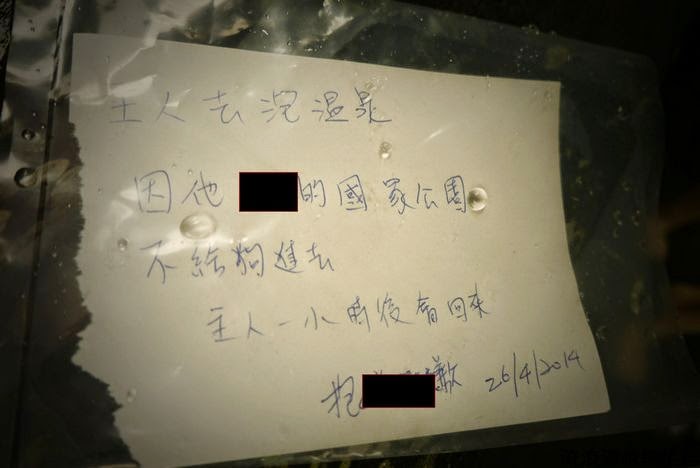 主人去泡溫泉
因他 的國家公園
不給狗進去
主人一小時後會回來
抱 歉 26/4/2014